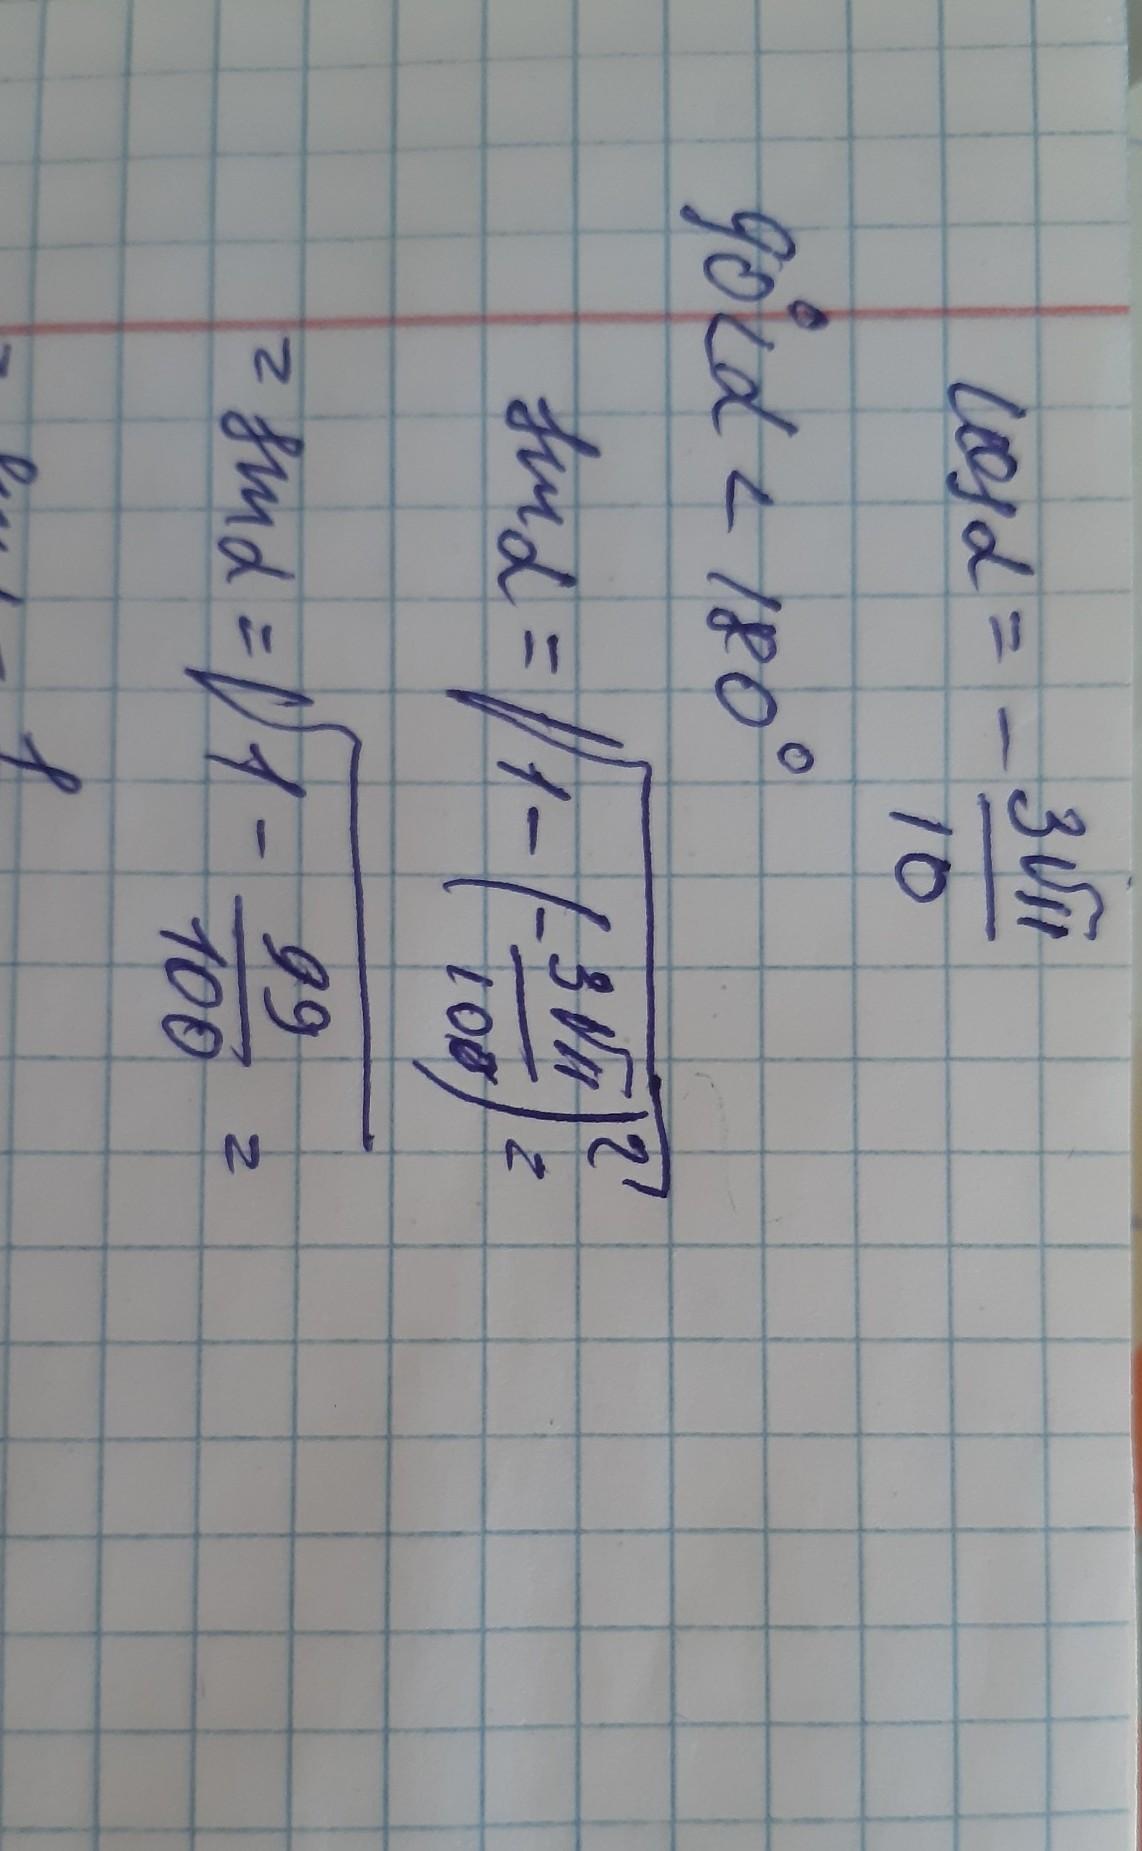 cos α = − 3√11 / 10
90° < α < 180°
sin α = √(1 − (− 3√11 / 100)²) =
= sin α = √(1 − 99 / 100) =